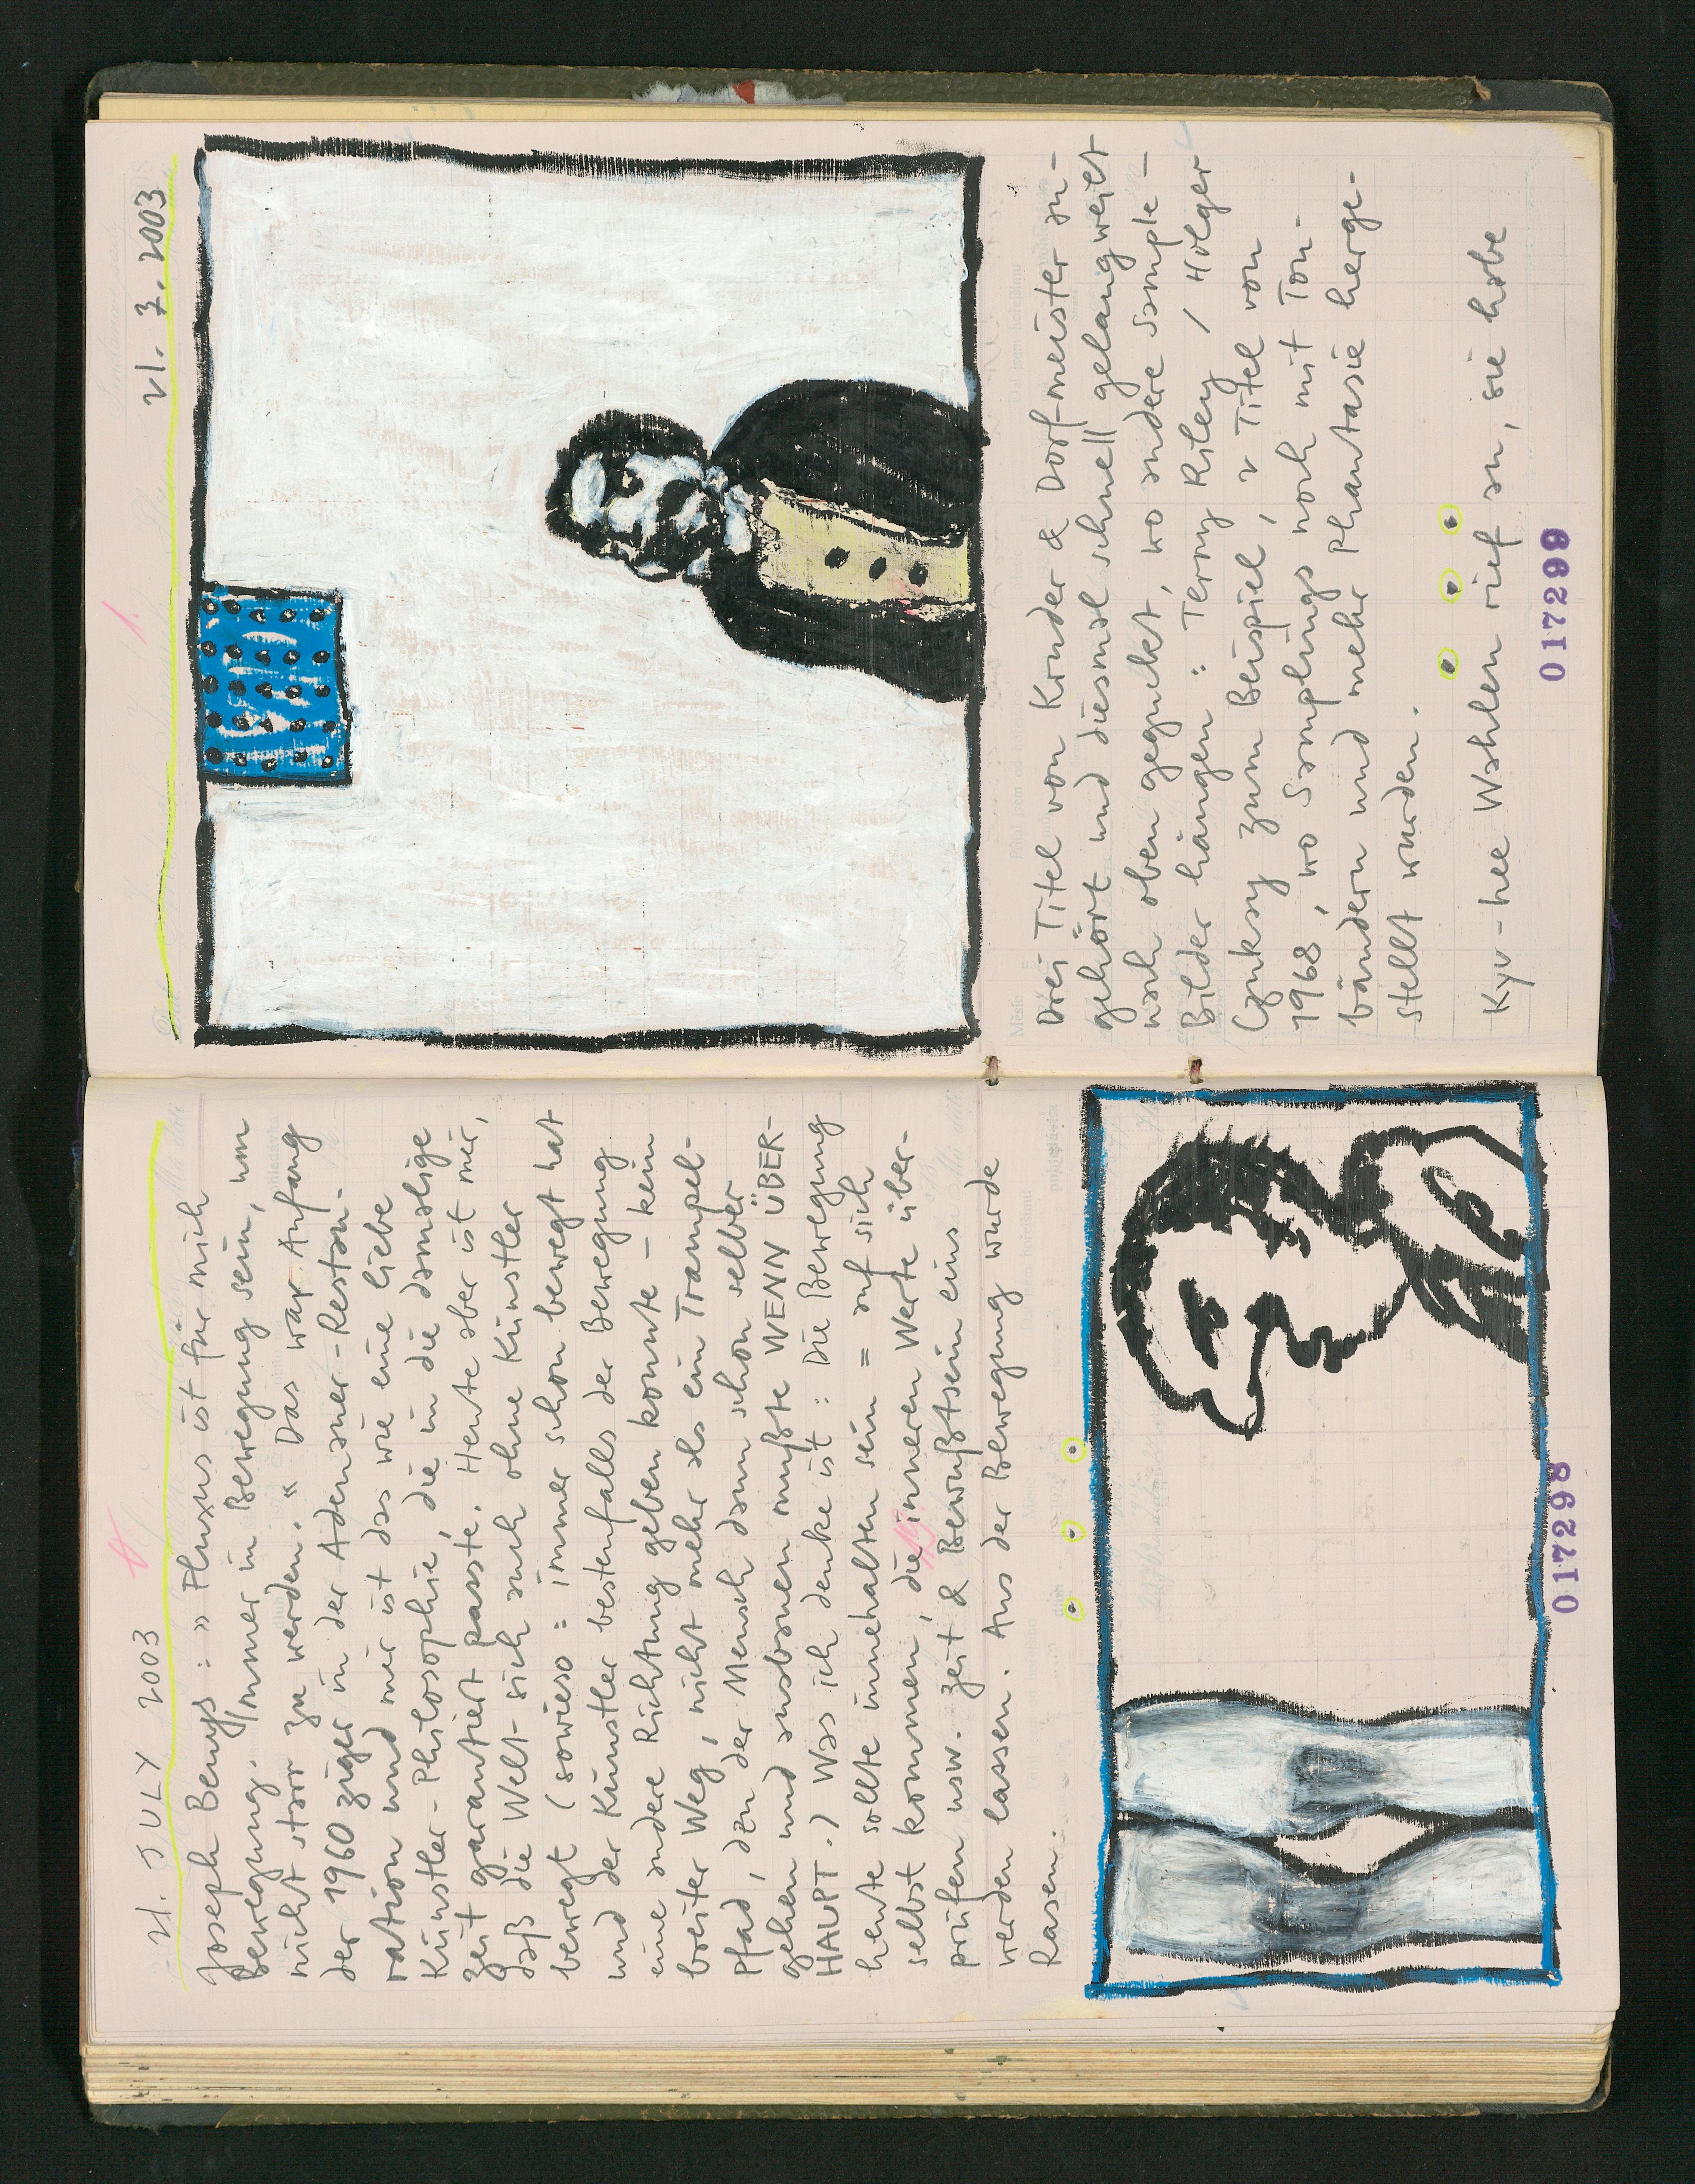 21. JULY 2003
Joseph Beuys: »Fluxus ist für mich
Bewegung. Immer in Bewegung sein, um
nicht starr zu werden.« Das war Anfang
der 1960 ziger in der Adenauer-Restau-
ration und mir ist das wie eine liebe
Künstler-Philosophie, die in die damalige
Zeit garantiert passte. Heute aber ist mir,
daß die Welt sich auch ohne Künstler
bewegt (sowieso: immer schon bewegt hat
und der Künstler bestenfalls der Bewegung
eine andere Richtung geben konnte – kein
breiter Weg, nicht mehr als ein Trampel-
pfad, den der Mensch dann schon selber
gehen und ausbauen mußte WENN ÜBER-
HAUPT.) Was ich denke ist: Die Bewegung
heute sollte innehalten sein = auf sich
selbst kommen, die inneren Werte über-
prüfen usw. Zeit & Bewußtsein eins
werden lassen. Aus der Bewegung wurde
Rasen.
017298
21. 7. 2003
Drei Titel von Kruder & Dorfmeister an-
gehört und diesmal schnell gelangweilt
nach oben geguckt, wo andere Sample-
Bilder hängen: Terry Riley / Holger
Czukay zum Beispiel, 2 Titel von
1968, wo Samplings noch mit Ton-
bändern und mehr Phantasie herge-
stellt wurden.
Kyu-hee Wahlen rief an, sie habe
017299